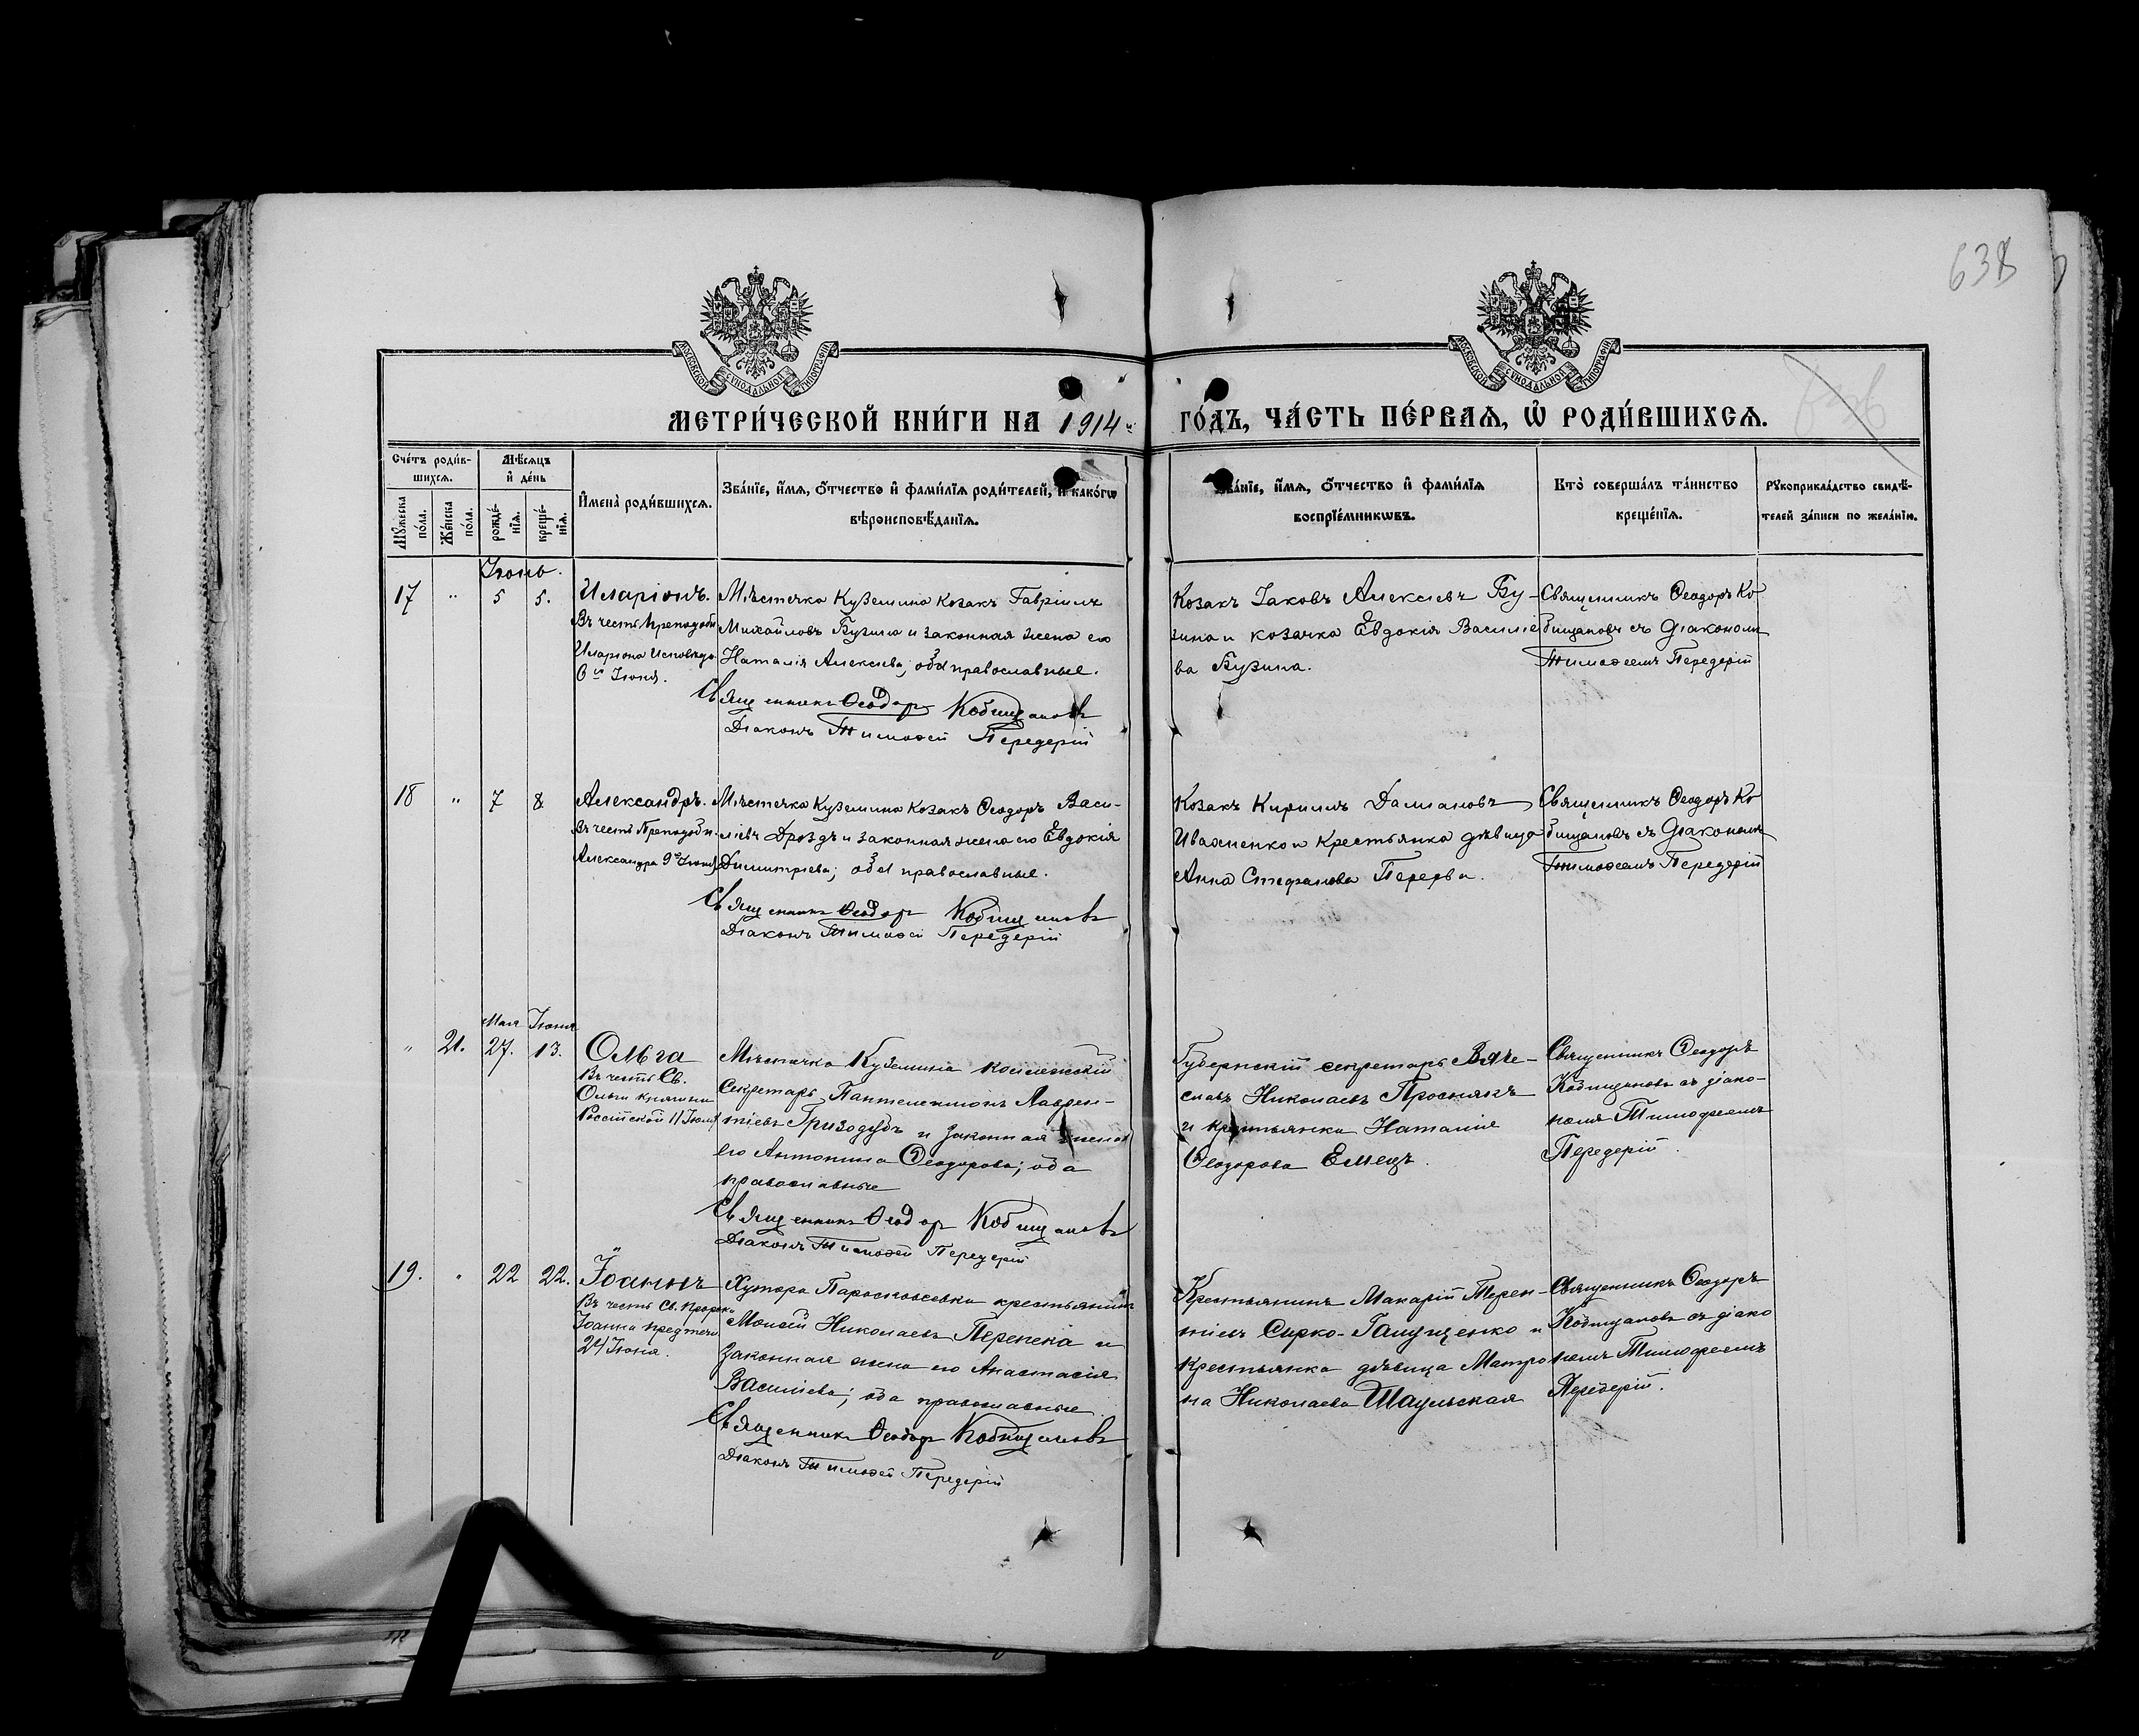 638
МОСКОВСКОЙ СУНОДАЛЬНОЙ ТИПОГРАФІИ
МОСКОВСКОЙ СУНОДАЛЬНОЙ ТИПОГРАФІИ
МЕТРИ́ЧЕСКОЙ КНИ́ГИ НА 1914 й ГО́ДЪ, ЧА́СТЬ ПЕ́РВАЯ, Ѡ РОДИ́ВШИХСЯ.
Сче́тъ роди́в-
шихся.
Мꙋ́жеска по́ла.
Же́нска по́ла.
Мѣ́сяцъ
и҆ де́нь
рожде́-
нїя.
креще́-
нїя.
И҆мена̀ роди́вшихся.
Зва́нїе, и҆́мя, ѻ҆́тчество и҆ фами́лїя роди́телей, и҆ како́гѡ
вѣроисповѣ́данїя.
Зва́нїе, и҆́мя, ѻ҆́тчество и҆ фами́лїя
воспрїе́мникѡвъ.
Кто̀ соверша́лъ та́инство
креще́нїя.
Рꙋкоприкла́дство свидѣ́-
телей за́писи по жела́нїю.
Іюнь.
17 " 5 5.
Иларіонъ.
Въ честь преподобн.
Иларіона Исповѣдн.
6го Іюня.
Мѣстечка Куземина козакъ Гавріилъ
Михайловъ Бузина и законная жена его
Наталія Алексіева; оба православные.
Священникъ Ѳеодоръ Кобищановъ
Діаконъ Тимоѳей Передерій
Козакъ Іаковъ Алексіевъ Бу-
зина и козачка Евдокія Василіе
ва Бузина.
Священникъ Ѳеодоръ Ко
бищановъ съ діакономъ
Тимоѳеемъ Передерій
18 " 7 8
Александръ.
Въ честь Преподобн.
Александра 9го Іюня
Мѣстечка Куземина козакъ Ѳеодоръ Васи-
ліевъ Дроздъ и законная жена его Евдокія
Димитріева; оба православные.
Священникъ Ѳеодоръ Кобищановъ
Діаконъ Тимоѳей Передерій
Козакъ Кириллъ Даміановъ
Ивахненко и крестьянка дѣвица
Анна Стефанова Перерва.
Священникъ Ѳеодоръ Ко
бищановъ съ діакономъ
Тимоѳеемъ Передерій
Мая Іюня
" 21. 27. 13.
Ольга
Въ честь Св.
Ольги княгини
Россійской 11 Іюля
Мѣстечка Куземина коллежскій
секретарь Пантелеимонъ Лаврен-
тіевъ Гризодубъ и законная жена
его Антонина Ѳеодорова; оба
православные
Священникъ Ѳеодоръ Кобищановъ
Діаконъ Тимоѳей Передерій
Губернскій секретарь Вяче-
славъ Николаевъ Проснякъ
и крестьянка Наталія
Ѳеодорова Емецъ.
Священникъ Ѳеодоръ
Кобищановъ съ діако-
номъ Тимоѳеемъ
Передерій.
19. " 22 22.
Іоаннъ
Въ честь Св. Пророка
Іоанна Предтечи
24 Іюня.
Хутора Парасковеевки крестьянинъ
Моисей Николаевъ Перепека и
законная жена его Анастасія
Василіева; оба православные
Священникъ Ѳеодоръ Кобищановъ
Діаконъ Тимоѳей Передерій
Крестьянинъ Макарій Терен-
тіевъ Сирко-Галущенко и
крестьянка дѣвица Матро
на Николаева Шаульская
Священникъ Ѳеодоръ
Кобищановъ съ діако
номъ Тимоѳеемъ
Передерій.